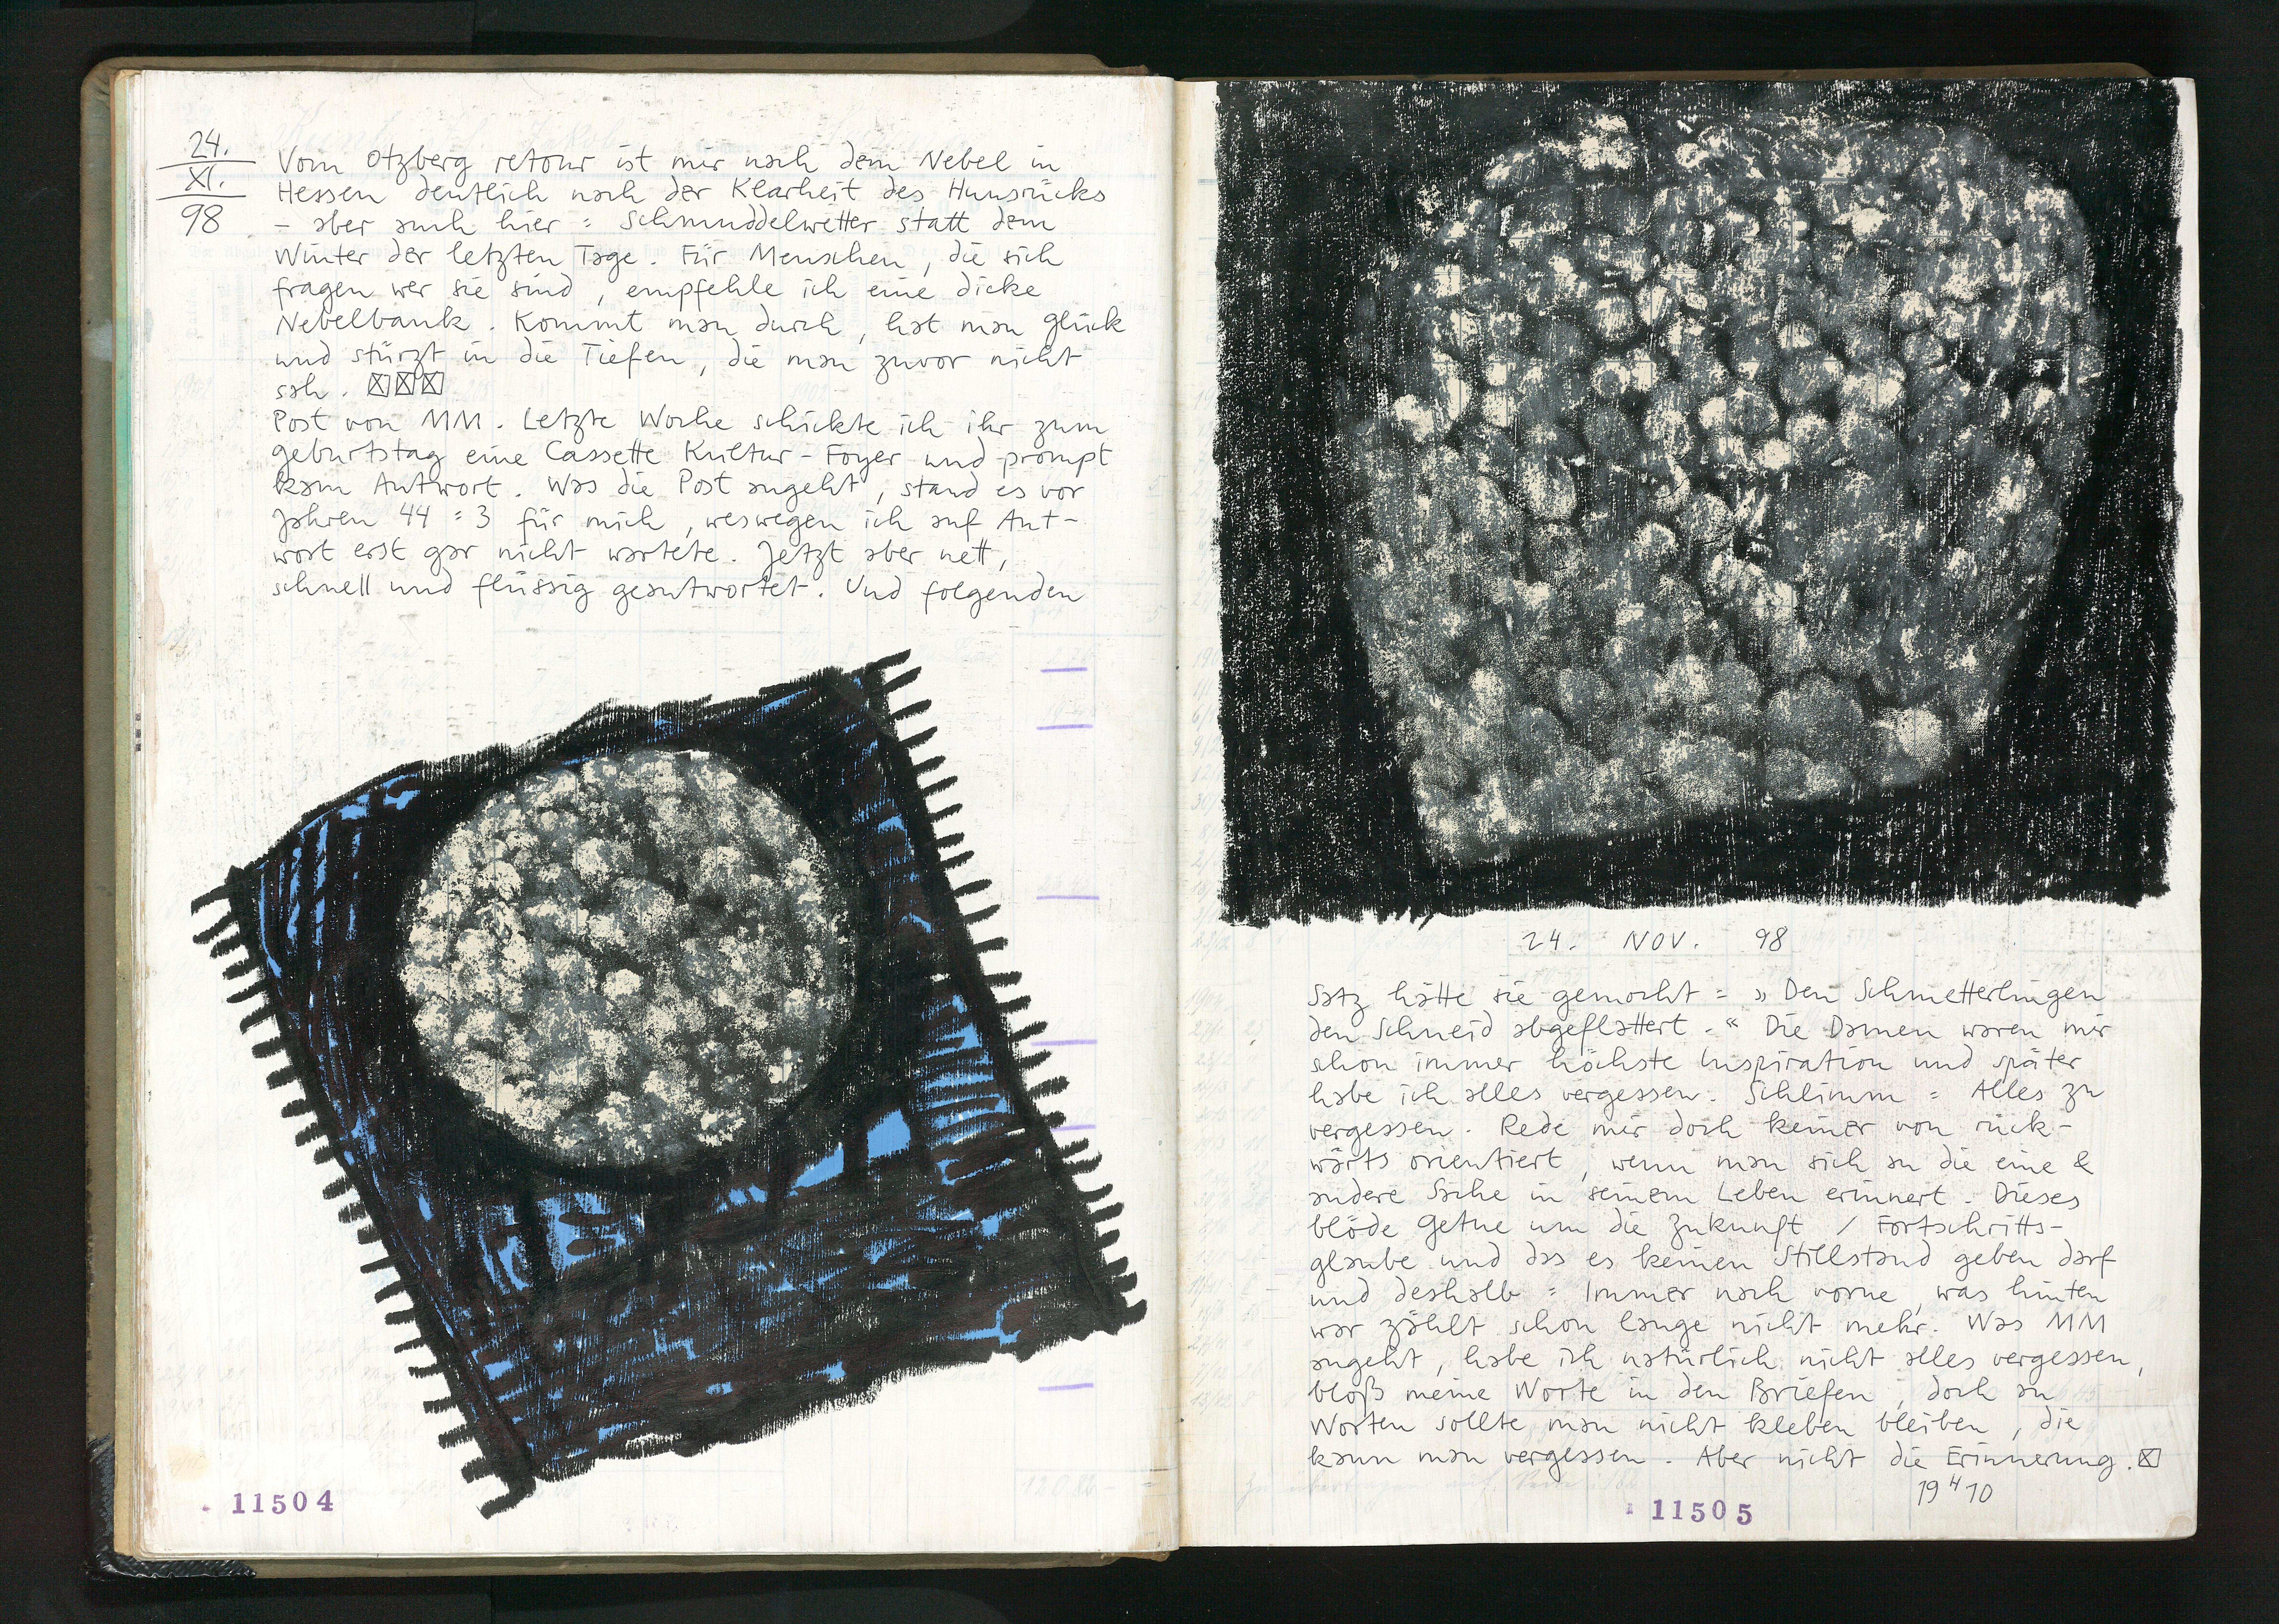 24.
XI.
98
Vom Otzberg retour ist mir nach dem Nebel in
Hessen deutlich nach der Klarheit des Hunsrücks
– aber auch hier : Schmuddelwetter statt dem
Winter der letzten Tage. Für Menschen, die sich
fragen wer sie sind, empfehle ich eine dicke
Nebelbank. Kommt man durch, hat man Glück
und stürzt in die Tiefen, die man zuvor nicht
sah. ☒☒☒
Post von MM. Letzte Woche schickte ich ihr zum
Geburtstag eine Cassette Kultur-Foyer und prompt
kam Antwort. Was die Post angeht, stand es vor
Jahren 44 : 3 für mich, weswegen ich auf Ant-
wort erst gar nicht wartete. Jetzt aber nett,
schnell und flüssig geantwortet. Und folgenden
11504
24. NOV. 98
Satz hätte sie gemocht : „ Den Schmetterlingen
den Schneid abgeflattert. “ Die Damen waren mir
schon immer höchste Inspiration und später
habe ich alles vergessen. Schlimm : Alles zu
vergessen. Rede mir doch keiner von rück-
wärts orientiert, wenn man sich an die eine &
andere Sache in seinem Leben erinnert. Dieses
blöde Getue um die Zukunft / Fortschritts-
glaube und das es keinen Stillstand geben darf
und deshalb : Immer nach vorne, was hinten
war zählt schon lange nicht mehr. Was MM
angeht, habe ich natürlich nicht alles vergessen,
bloß meine Worte in den Briefen, doch an
Worten sollte man nicht kleben bleiben, die
kann man vergessen. Aber nicht die Erinnerung. ☒
19 H 10
11505